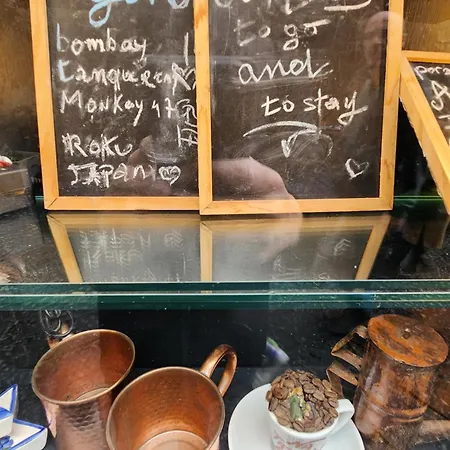 gin
bombay
tanqueray
Monkey 47
Roku
JAPAN
to go
and
to stay